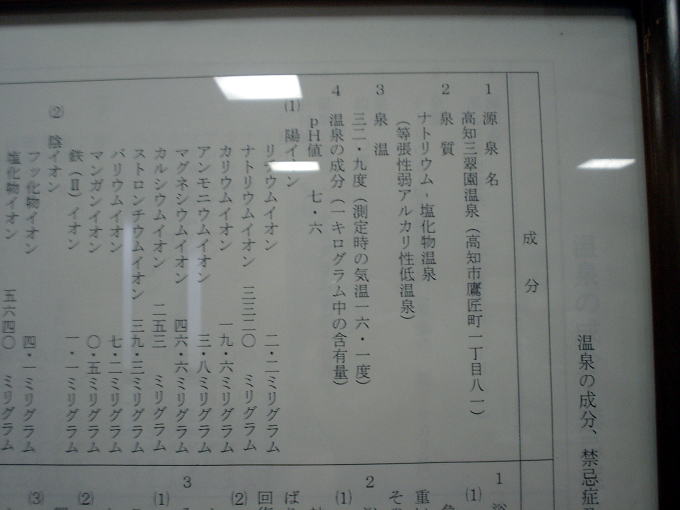 温泉の成分、禁忌症
成分
1 源泉名
高知三翠園温泉（高知市鷹匠町一丁目八一）
2 泉質
ナトリウム-塩化物温泉
（等張性弱アルカリ性低温泉）
3 泉温
三二・九度（測定時の気温一六・一度）
4 温泉の成分（一キログラム中の含有量）
pH値 七・六
(1) 陽イオン
リチウムイオン 二・二ミリグラム
ナトリウムイオン 三三二〇 ミリグラム
カリウムイオン 一九・六ミリグラム
アンモニウムイオン 三・八ミリグラム
マグネシウムイオン 四六・六ミリグラム
カルシウムイオン 二五三 ミリグラム
ストロンチウムイオン 三九・三ミリグラム
バリウムイオン 七・二ミリグラム
マンガンイオン 〇・五ミリグラム
鉄(Ⅱ)イオン 一・一ミリグラム
② 陰イオン
フッ化物イオン 四・一ミリグラム
塩化物イオン 五六四〇 ミリグラム
1
(1)
2
(1)
(2)
3
(1)
(2)
(3)